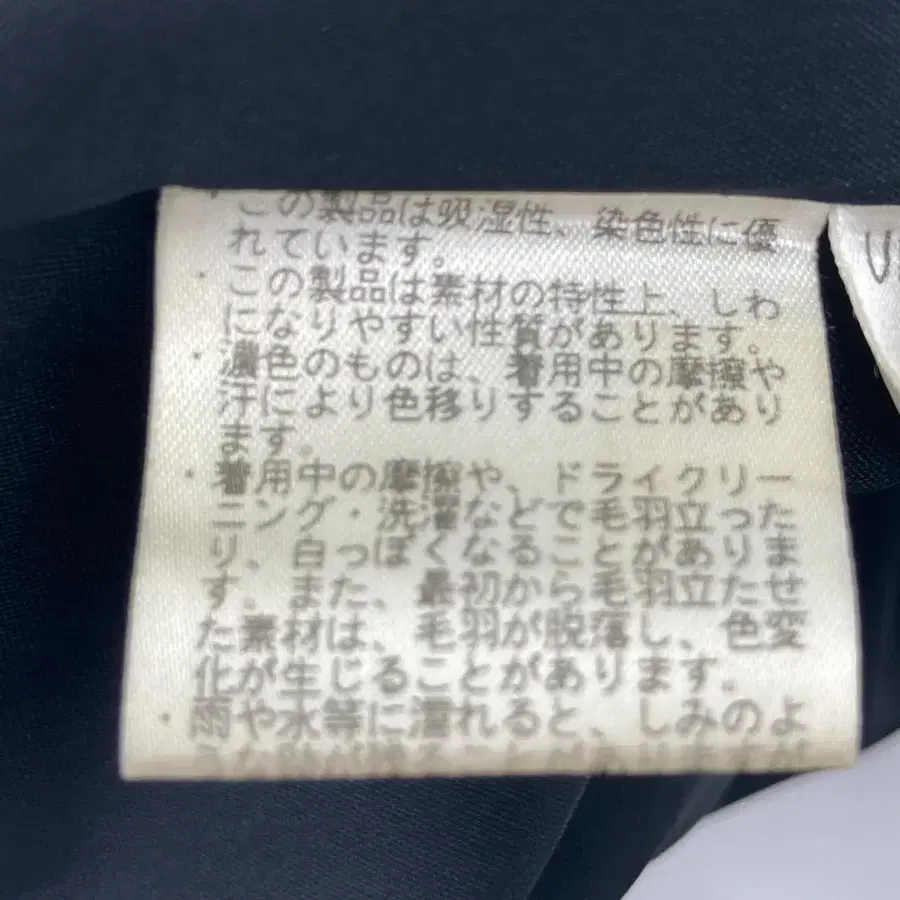 ・この製品は吸湿性、染色性に優
れています。
・この製品は素材の特性上、しわ
になりやすい性質があります。
・濃色のものは、着用中の摩擦や
汗により色移りすることがあり
ます。
・着用中の摩擦や、ドライクリー
ニング・洗濯などで毛羽立った
り、白っぽくなることがありま
す。また、最初から毛羽立たせ
た素材は、毛羽が脱落し、色変
化が生じることがあります。
・雨や水等に濡れると、しみのよ